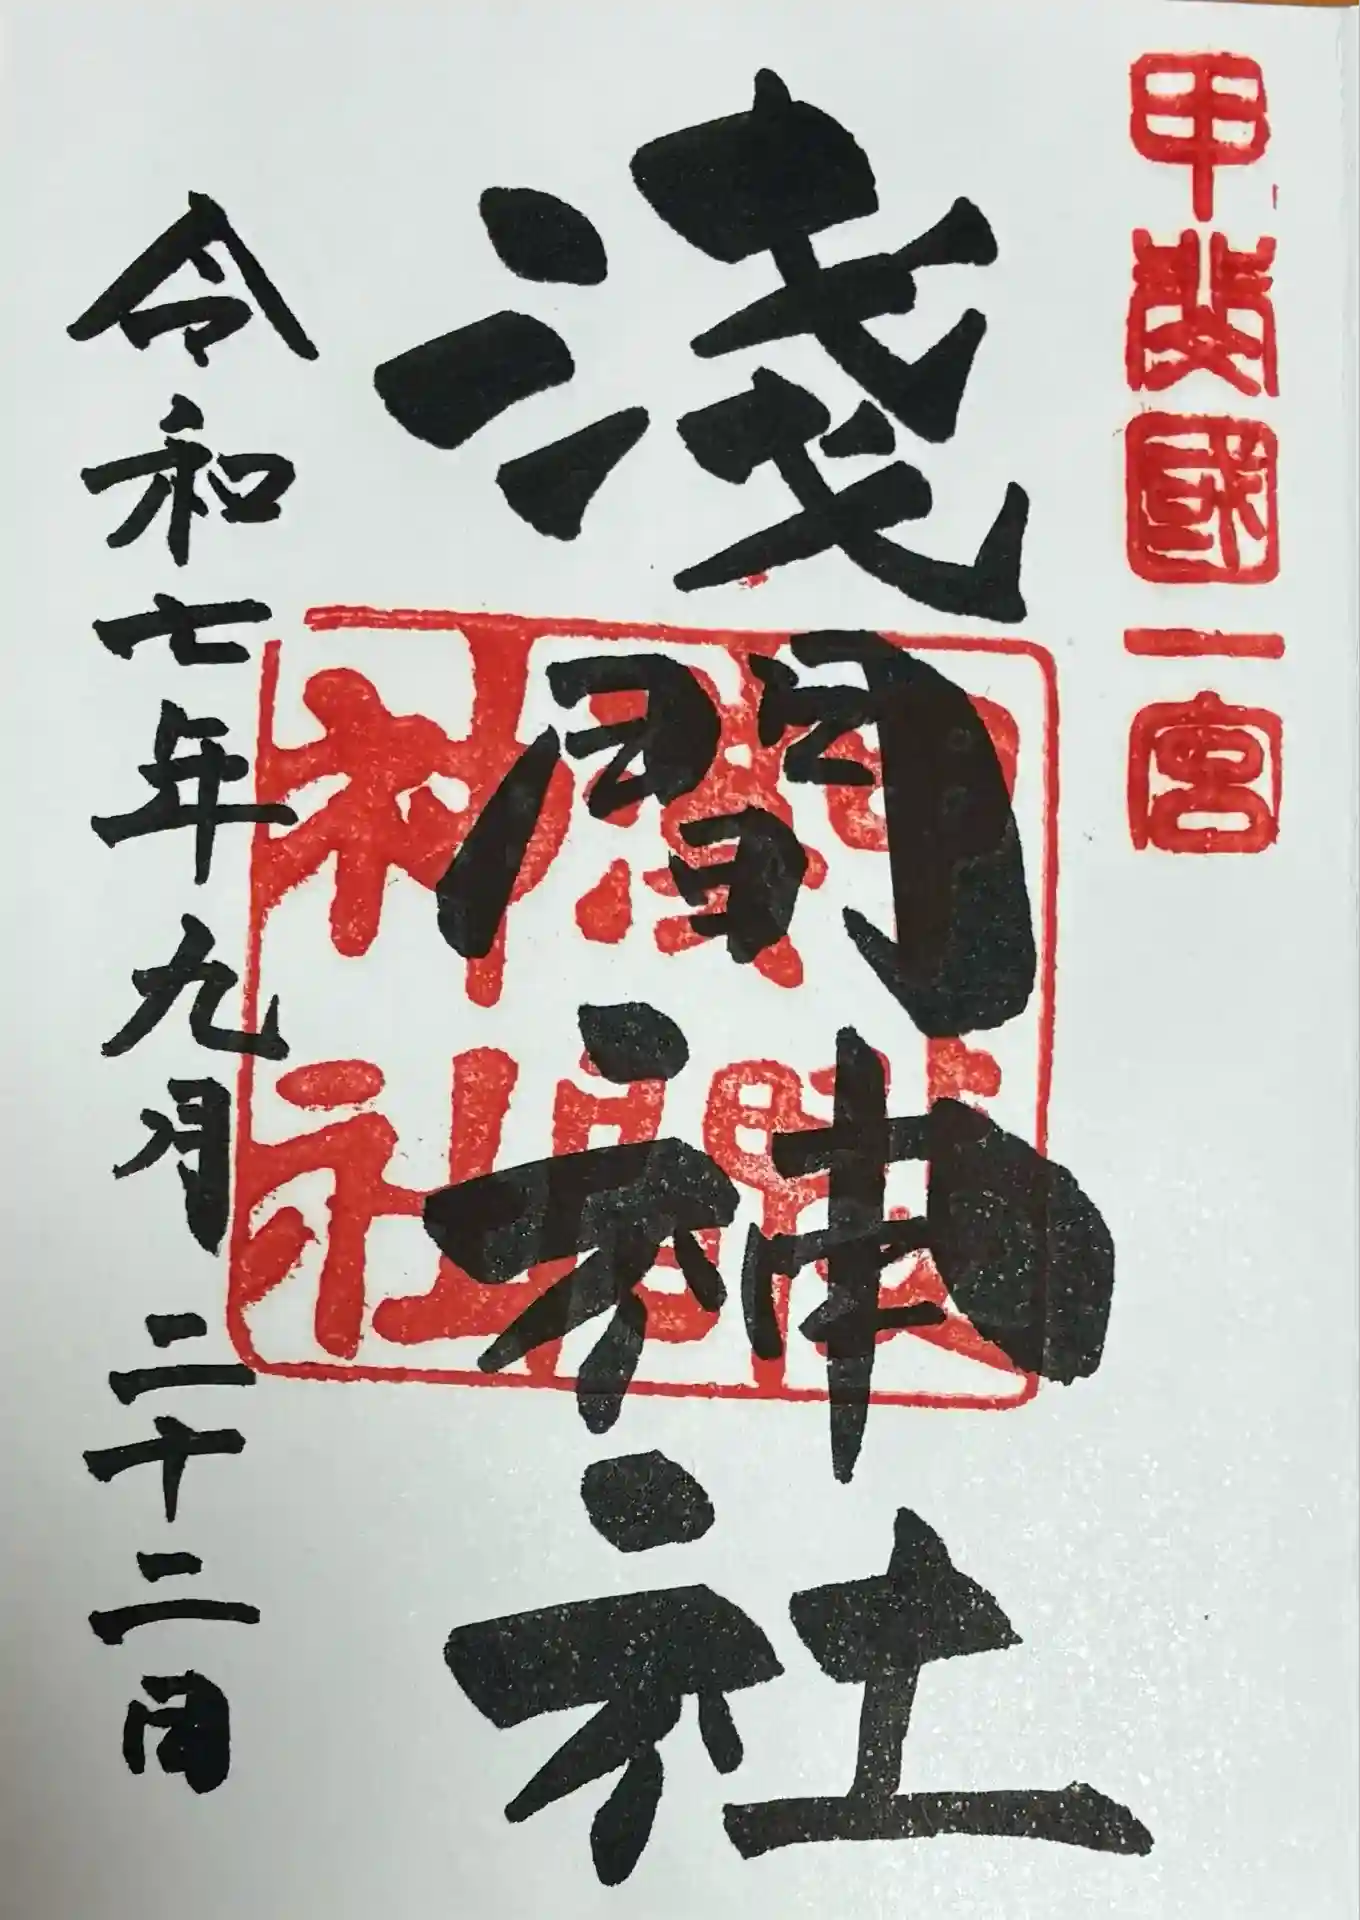 甲斐國一宮
淺間神社
令和七年九月二十二日